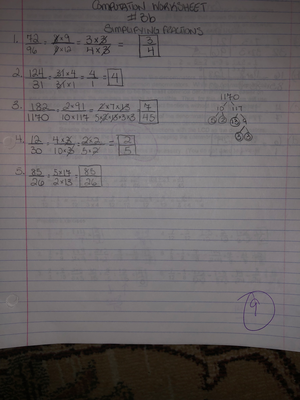 COMPUTATION WORKSHEET
#13b
SIMPLIFYING FRACTIONS
1. 72/96 = 8×9/8×12 = 3×3/4×3 = 3/4
2. 124/31 = 31×4/31×1 = 4/1 = 4
3. 182/1170 = 2×91/10×117 = 2×7×13/5×2×13×3×3 = 7/45
1170
10 117
4. 12/30 = 4×3/10×3 = 2×2/5×2 = 2/5
5. 85/26 = 5×17/2×13 = 85/26
9